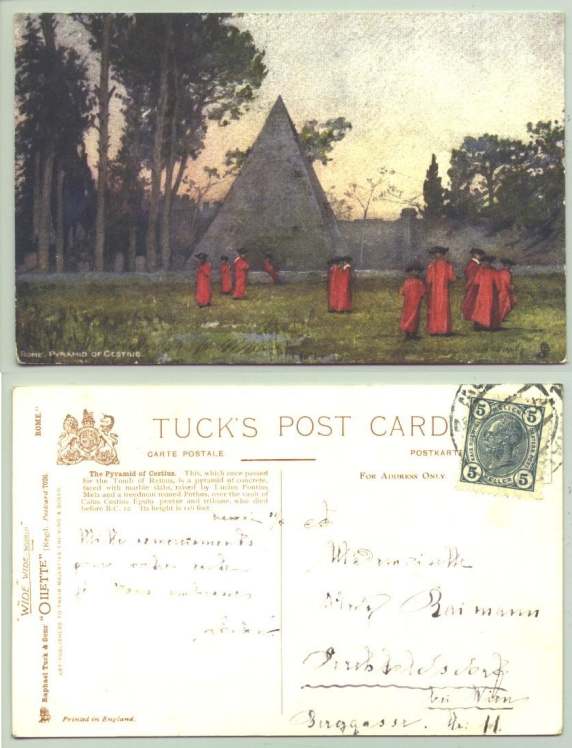 ROME. PYRAMID OF CESTIUS.
ROME."
TUCK'S POST CARD
CARTE POSTALE
POSTKARTE
FOR ADDRESS ONLY
The Pyramid of Cestius. This, which once passed
for the Tomb of Remus, is a pyramid of concrete,
faced with marble slabs, raised by Lucius Pontius
Mela and a freedman named Pothus, over the vault of
Caius Cestius Epulo, prætor and tribune, who died
before B.C. 12. Its height is 116 feet.
5 5
HELLER
5 5
HELLER
"WIDE WIDE WORLD"
Raphael Tuck & Sons' "OILETTE" [Regd.] Postcard
ART PUBLISHERS TO THEIR MAJESTIES THE KING & QUEEN.
Mille remerciements
pour votre carte
Je vous embrasse
A
Mademoiselle
Raimann
Perchtoldsdorf
bei Wien
Berggasse No. 11.
Printed in England.